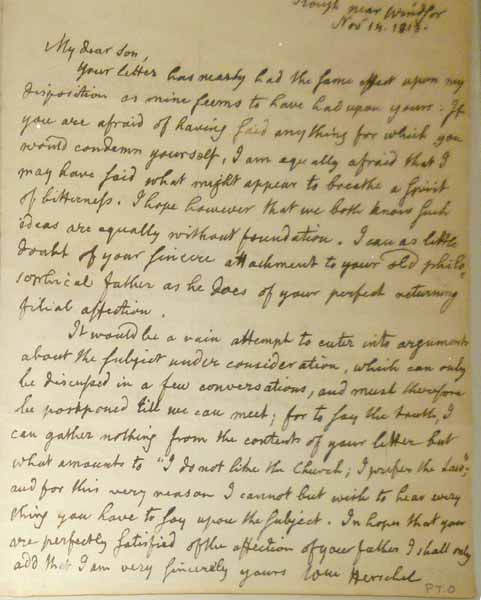 Slough near Windsor
Nov 14. 1813.
My dear Son,
Your letter has nearly had the same effect upon my
disposition as mine seems to have had upon yours. If
you are afraid of having said anything for which you
would condemn yourself, I am equally afraid that I
may have said what might appear to breathe a spirit
of bitterness. I hope however that we both know such
ideas are equally without foundation. I can as little
doubt of your sincere attachment to your old philo-
sophical father as he does of your perfect returning
filial affection.
It would be a vain attempt to enter into arguments
about the subject under consideration, which can only
be discussed in a few conversations, and must therefore
be postponed till we can meet; for to say the truth, I
can gather nothing from the contents of your letter but
what amounts to "I do not like the Church; I prefer the Law";
and for this very reason I cannot but wish to hear every
thing you have to say upon the subject. In hopes that you
are perfectly satisfied of the affection of your father I shall only
add that I am very sincerely yours Wm Herschel
P.T.O